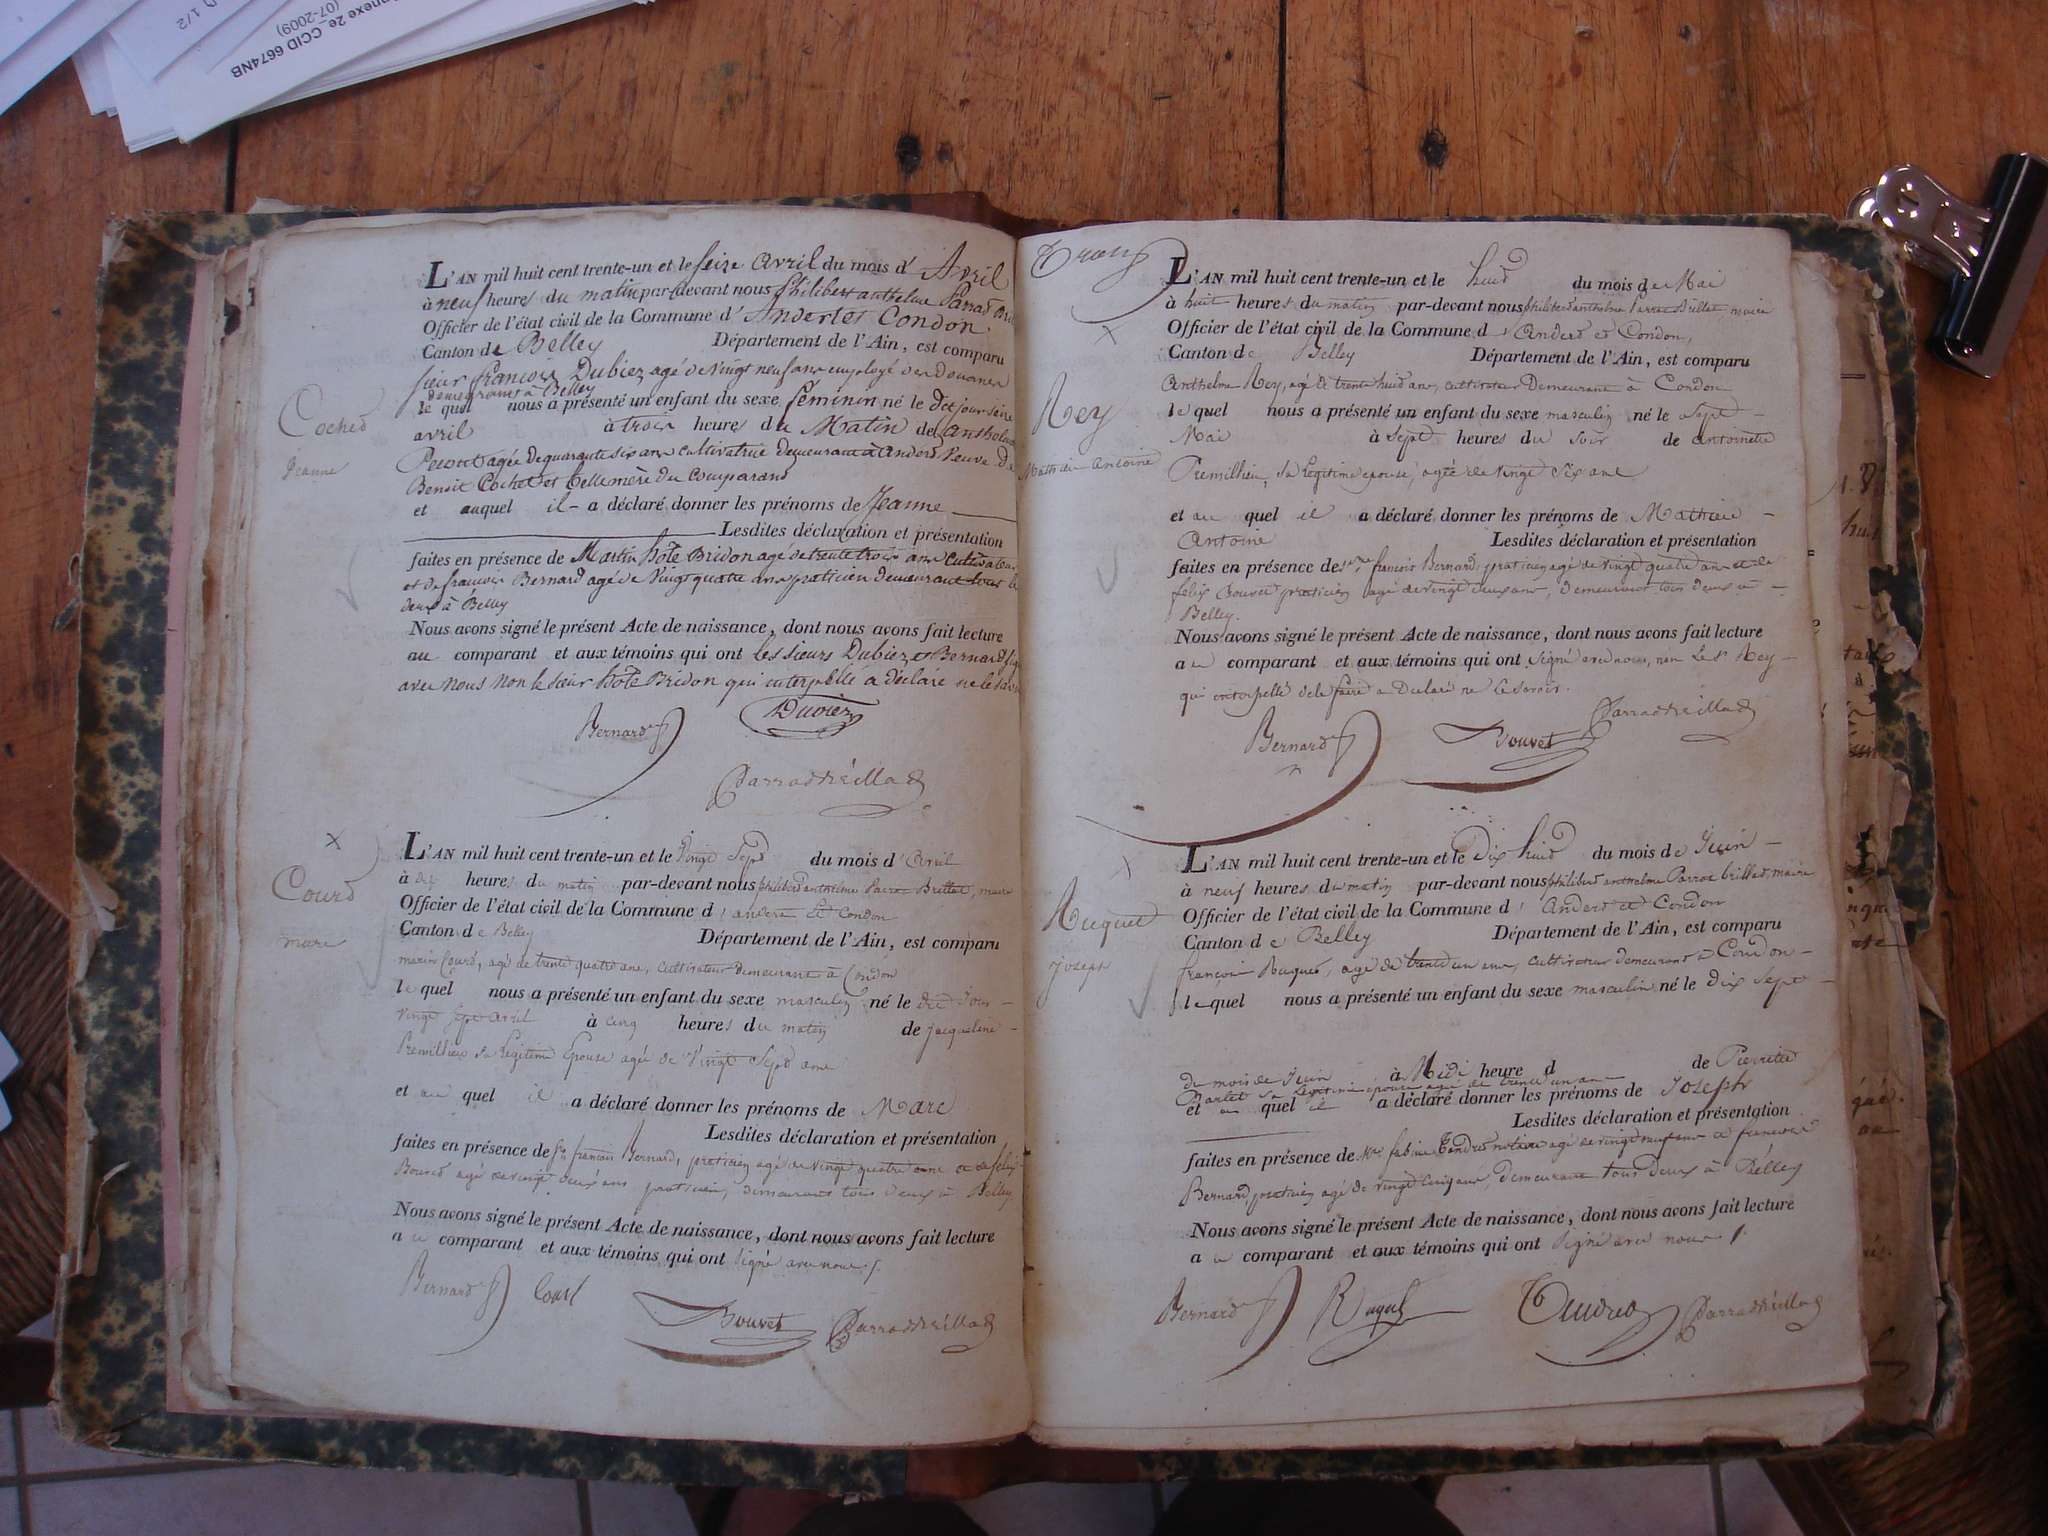 nnexe 2e_ CCID 6674NB
(07-2009)
1/2
L'AN mil huit cent trente-un et le seize avril du mois d' Avril
à neuf heures du matin par-devant nous Philibert anthelme Parrat Bri
Officier de l'état civil de la Commune d' Andert et Condon.
Canton de Belley Département de l'Ain, est comparu
sieur françois Dubiez agé de vingt neuf ans employé des douanes
demeurant à Belley
le quel nous a présenté un enfant du sexe féminin né le dit jour seize
avril à trois heures du Matin de
agée de quarante six ans cultivatrice demeurant à Andert veuve de
Benoit Cochet et belle mère du Comparand
et auquel il - a déclaré donner les prénoms de Jeanne
Lesdites déclaration et présentation
faites en présence de Martin hote Bridon agé de trente trois ans cultivateur
et de françois Bernard agé de vingt quatre ans praticien demeurant tous le
deux à Belley
Nous avons signé le présent Acte de naissance, dont nous avons fait lecture
au comparant et aux témoins qui ont les sieurs Dubiez et Bernard
avec nous non le sieur hote Bridon qui interpellé a déclaré ne le savoir
Bernard Dubiez
Parrat Brillat
Cochet
Jeanne
L'AN mil huit cent trente-un et le vingt sept du mois d' avril
à dix heures du matin par-devant nous philibert anthelme Parrat Brillat, maire
Officier de l'état civil de la Commune d' andert et Condon
Canton de Belley Département de l'Ain, est comparu
marin Court, agé de trente quatre ans, cultivateur demeurant à Condon
le quel nous a présenté un enfant du sexe masculin né le dit jour
vingt sept avril à cinq heures du matin de jacqueline
Premillieu sa légitime Epouse agée de vingt sept ans
et au quel il a déclaré donner les prénoms de Marc
Lesdites déclaration et présentation
faites en présence de Sr. françois Bernard, praticien agé de vingt quatre ans et de félix
Bouvet agé de vingt deux ans praticien, demeurant tous deux à Belley
Nous avons signé le présent Acte de naissance, dont nous avons fait lecture
au comparant et aux témoins qui ont signé avec nous
Bernard Court Bouvet Parrat Brillat
Court
marc
L'AN mil huit cent trente-un et le huit du mois de Mai
à huit heures du matin par-devant nous philibert anthelme Parrat Brillat, maire
Officier de l'état civil de la Commune d' Andert et Condon,
Canton de Belley Département de l'Ain, est comparu
Anthelme Rey, agé de trente huit ans, cultivateur Demeurant à Condon
le quel nous a présenté un enfant du sexe masculin né le sept
Mai à sept heures du soir de antoinette
Premillieu, sa légitime epouse, agée de vingt six ans
et au quel il a déclaré donner les prénoms de Mathieu
Antoine Lesdites déclaration et présentation
faites en présence de françois Bernard, praticien agé de vingt quatre ans et de
félix Bouvet praticien agé de vingt deux ans, demeurant tous deux à
Belley.
Nous avons signé le présent Acte de naissance, dont nous avons fait lecture
au comparant et aux témoins qui ont signé avec nous, non le Sr Rey
qui interpellé de le faire a Declaré ne le savoir.
Bernard Bouvet Parrat Brillat
Rey
Mathieu Antoine
L'AN mil huit cent trente-un et le Dix huit du mois de Juin
à neuf heures du matin par-devant nous philibert anthelme Parrat brillat, maire
Officier de l'état civil de la Commune d' Andert et Condon
Canton de Belley Département de l'Ain, est comparu
françois Ruquet, agé de trente un ans, cultivateur demeurant à Condon
le quel nous a présenté un enfant du sexe masculin né le dix sept
du mois de Juin à Midi heure d de Pierrette
Barlet sa légitime épouse agée de trente un ans
et au quel il a déclaré donner les prénoms de Joseph
Lesdites déclaration et présentation
faites en présence de Me fabien Tendret notaire agé de vingt neuf ans et francois
Bernard, praticien agé de vingt cinq ans, demeurant tous deux à Belley
Nous avons signé le présent Acte de naissance, dont nous avons fait lecture
au comparant et aux témoins qui ont signé avec nous
Bernard Ruquet Tendret Parrat Brillat
Ruquet
Joseph